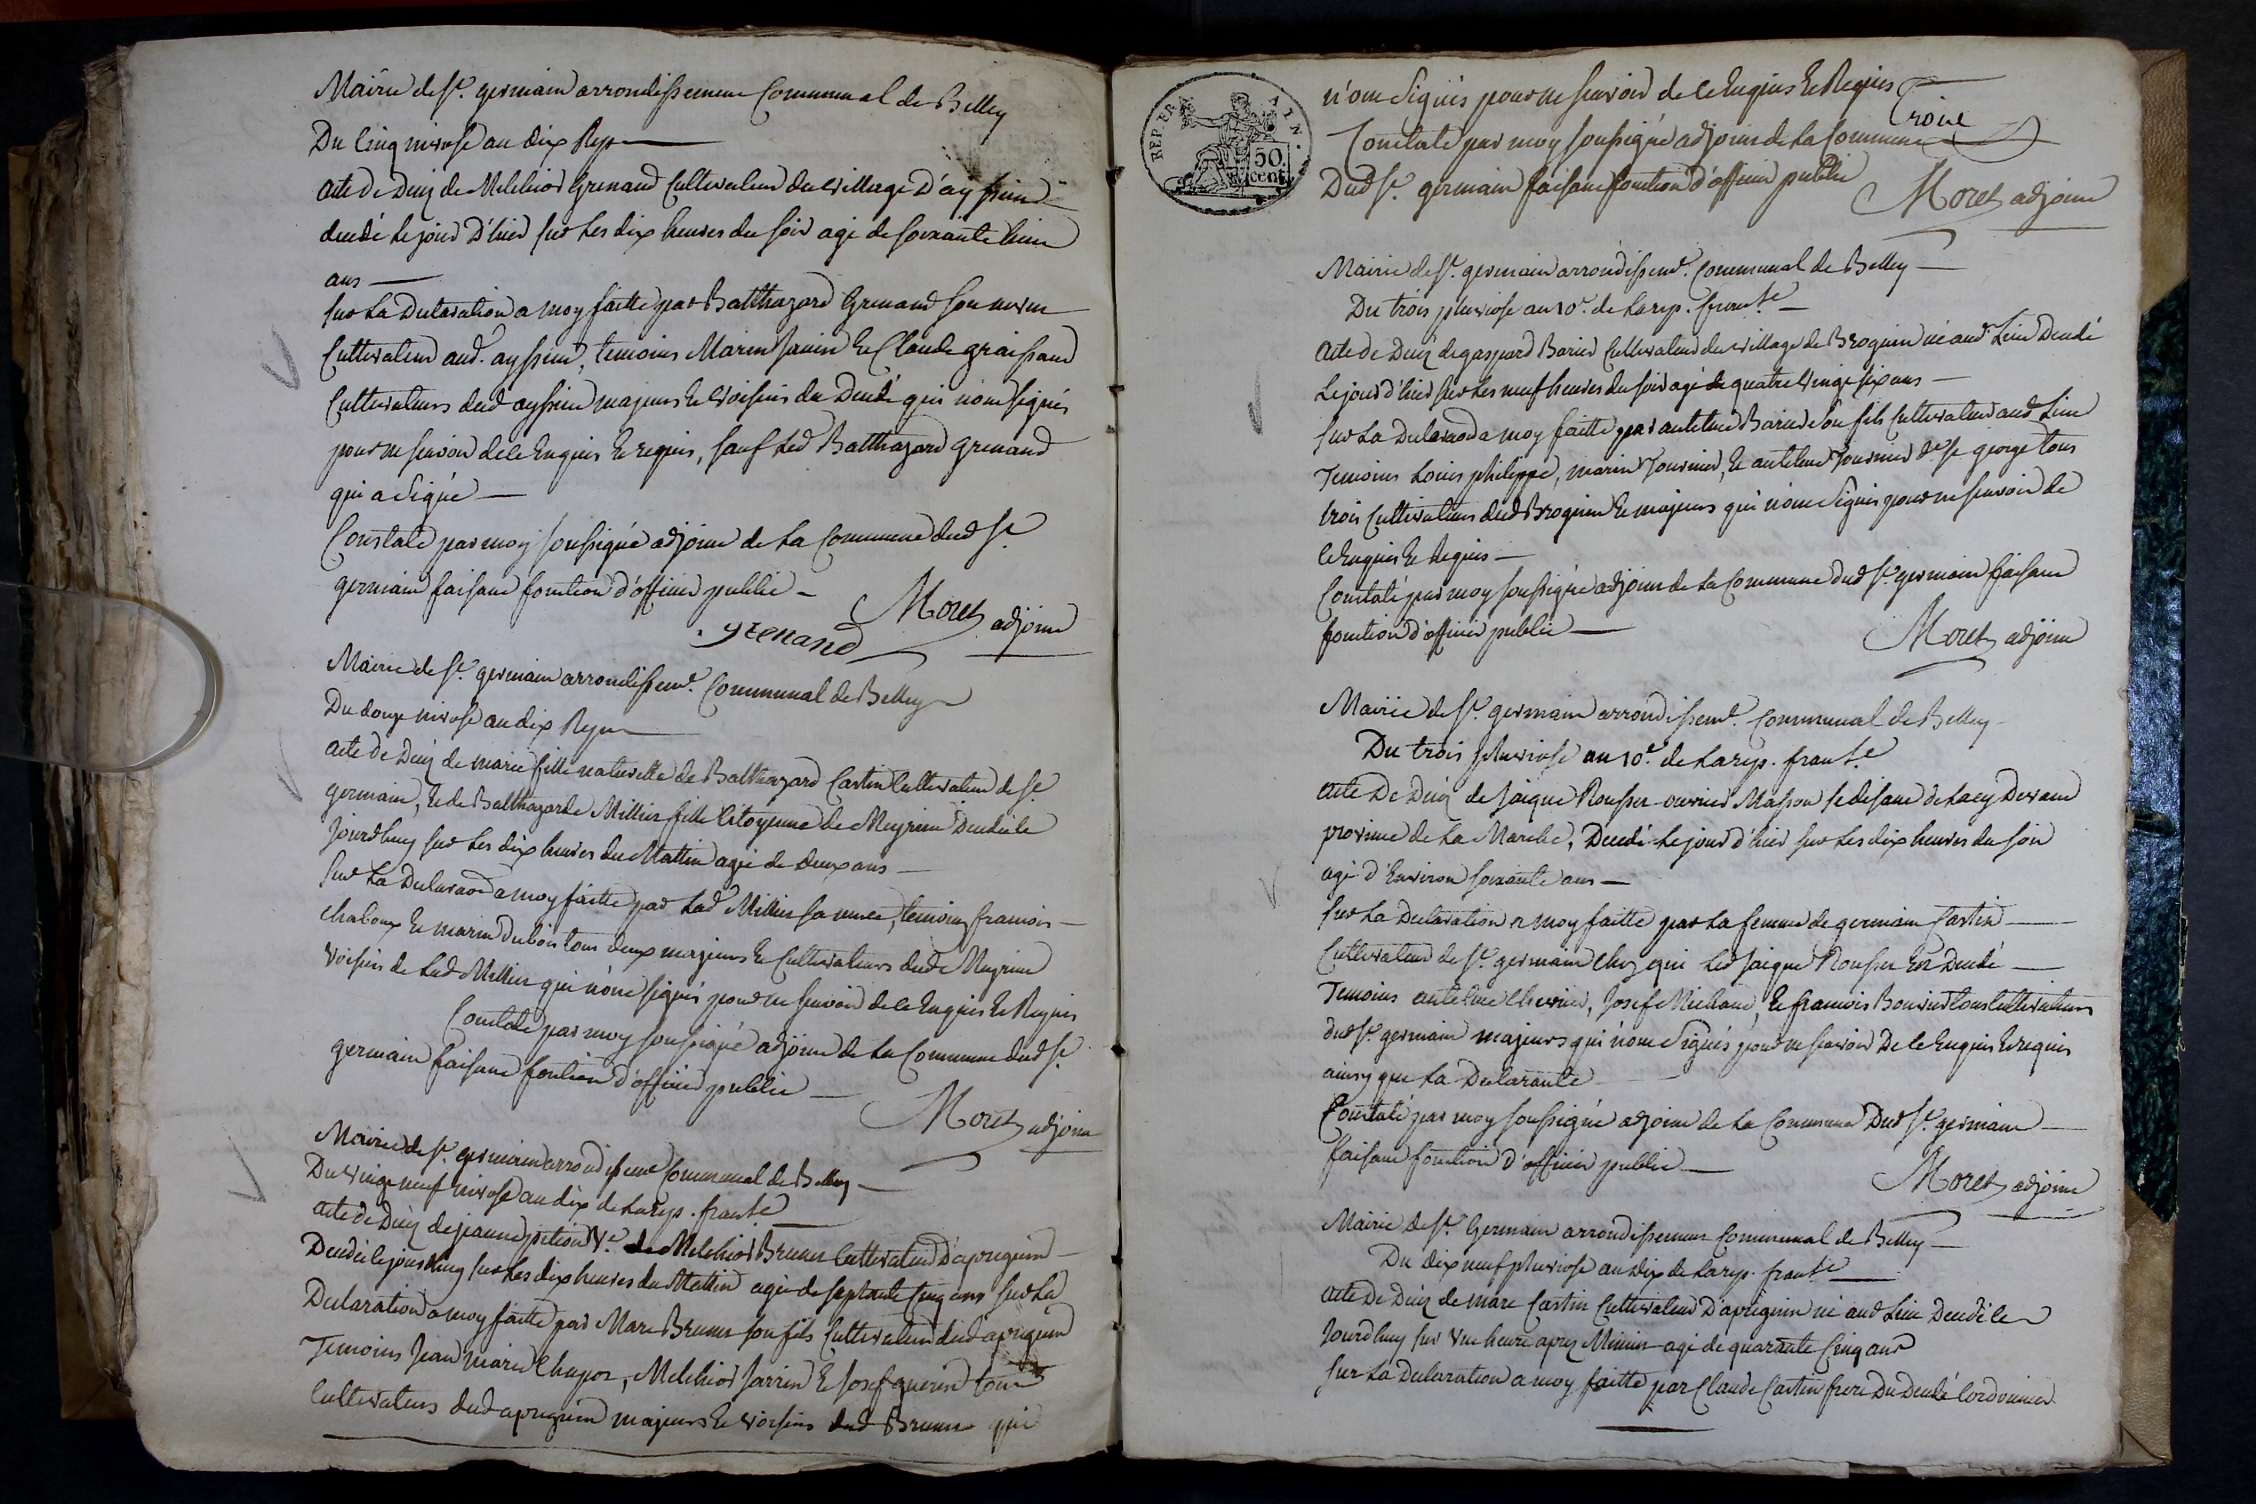 Mairie de St. germain arrondissement Communal de Belley
Du Cinq nivose an dix Rep
Acte de Deuz de Melchior Grenand Cultivateur du village D'ayssieu
decedé le jour D'hier sur Les dix heures du soir agé de soixante huit
ans
sur La Declaration a moy faitte par Balthazard Grenand son neveu
Cultivateur aud. ayssieu, temoins Marin Janin et Claude graissand
Cultivateurs dud ayssieu majeurs et voisins du Decedé qui n'ont signés
pour ne scavoir de ce Enquis et requis, sauf led Balthazard grenand
qui a signé
Constaté par moy soussigné adjoint de la Commune dud St
germain faisant fonction d'officier public
Moret adjoint
grenand
Mairie de St. germain arrondissemt. Communal de Belley
Du douze nivose an dix Rep
acte de Deuz de marie fille naturelle de Balthazard Castin Cultivateur de St
germain, et de Balthazarde Millier fille Citoyenne de Meyrieu Decedée le
Jourdhuy sur Les dix heures du Mattin agée de deux ans
sur La Declaraon a moy faitte par Lad Millier sa mere, temoins francois
chaboux et marin dubois tous deux majeurs et Cultivateurs dud Meyrieu
voisins de Lad Millier qui n'ont signés pour ne scavoir de ce Enquis et Requis
Constaté par moy soussigné adjoint de la Commune dud St.
germain faisant fonction d'officier public
Moret adjoint
Mairie de St. germain arrondissemt Communal de Belley
Du vingt neuf nivose an dix de La rep. franse
acte de Deuz de jeanne pition Ve. de Melchior Brunet Cultivateur D'apregnin
Decedée le jourdhuy sur Les dix heures du Mattin agée de septante Cinq ans sur La
Declaration a moy faitte par Marc Brunet son fils Cultivateur dud apregnin
Temoins Jean marie Chapot, Melchior Jarrin et Josef guerin tous
Cultivateurs dud apregnin majeurs et voisins dud Brunet qui
REP. FRA. AIN.
50. cent.
n'ont signés pour ne scavoir de ce Enquis et Requis
Troie
Constaté par moy soussigné adjoint de La Commune
Dud St. germain faisant fonction d'officier public
Moret adjoint
Mairie de St. germain arrondissemt. Communal de Belley
Du trois pluviose an 10e. de La rep. franse
Acte de Deuz de gaspard Barier Cultivateur du village de Brognin né aud Lieu Decedé
Le jour d'hier sur Les neuf heures du soir agé de quatre vingt six ans
sur La Declaraon a moy faitte par antelme Barier son fils Cultivateur aud Lieu
Temoins Louis philippe, marin Tournier, et antelme Tournier dt St george tous
trois Cultivateurs dud Brognin et majeurs qui n'ont signés pour ne scavoir de
ce Enquis et Requis
Constaté par moy soussigné adjoint de La Commune dud St. germain faisant
fonction d'officier public
Moret adjoint
Mairie de St. germain arrondissemt. Communal de Belley
Du trois pluviose an 10e. de La rep. franse
Acte De Deuz de Jaique Rousser ouvrier Masson se disant de Lacy Devant
province de La Marche, Decedé le jour d'hier sur Les dix heures du soir
agé d'Environ soixante ans
sur La Declaration a moy faitte par La femme de germain Castin
Cultivateur de St. germain Chez qui Led Jaique Rousser Est Decedé
Temoins antelme Chevrier, Josef Michaud, et francois Bouvier tous Cultivateurs
dud St. germain majeurs qui n'ont signés pour ne scavoir De ce Enquis et requis
ainsy que La Declarante
Constaté par moy soussigné adjoint de La Commune Dud St. germain
faisant fonction d'officier public
Moret adjoint
Mairie de St. Germain arrondissement Communal de Belley
Du dix neuf pluviose an dix de La rep. franse
Acte De Deuz de marc Castin Cultivateur D'apregnin né aud Lieu Decedé le
Jourdhuy sur Une heure aprez Minuit agé de quarante Cinq ans
sur La Declaration a moy faitte par Claude Castin frere Du Decedé Cordonnier